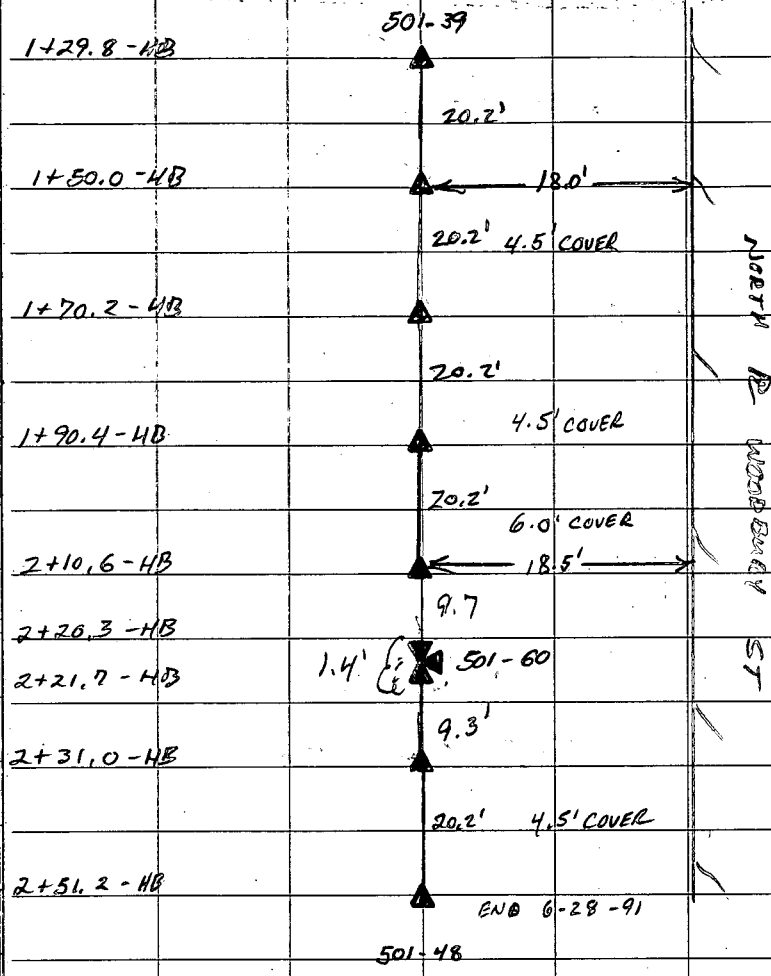 501-39
1+29.8-HB
20.2'
1+50.0-HB
18.0'
20.2' 4.5' COVER
1+70.2-HB
20.2'
1+90.4-HB
4.5' COVER
20.2'
6.0' COVER
2+10.6-HB
18.5'
9.7
2+20.3-HB
1.4'
501-60
2+21.7-HB
9.3'
2+31.0-HB
20.2' 4.5' COVER
2+51.2-HB
END 6-28-91
501-48
NORTH WOODBURY ST